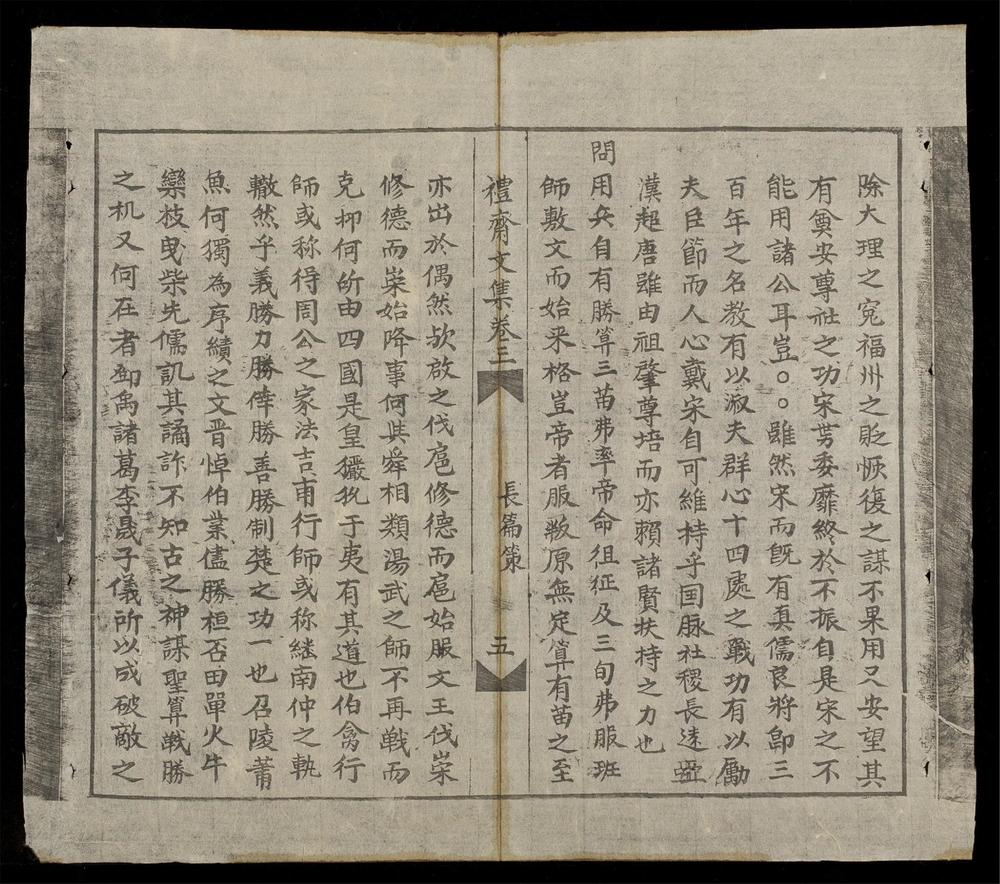 除大理之冤福州之貶恢復之謀不果用又安望其
有奠安尊社之功宋芸委靡終於不振自是宋之不
能用諸公耳豈○○雖然宋而既有真儒良將卽三
百年之名教有以淑夫群心十四處之戰功有以勵
夫臣節而人心戴宋自可維持乎国脉社稷長遠
漢起唐雖由祖肇尊培而亦賴諸賢扶持之力也
問用兵自有勝算三苗弗率帝命徂征及三旬弗服班
師敷文而始来格豈帝者服叛原無定算有苗之至
禮齋文集卷三 長篇策 五
亦出於偶然欤啟之伐扈修德而扈始服文王伐崇
修德而崇始降事何與舜相類湯武之師不再戦而
克抑何所由四國是皇玁狁于夷有其道也伯禽行
師或称得周公之家法吉甫行師或称継南仲之軌
轍然乎義勝力勝倖勝善勝制楚之功一也召陵莆
魚何獨為序績之文晋悼伯業儘勝桓否田單火牛
欒枝曳柴先儒訊其譎詐不知古之神謀聖算戦勝
之机又何在者御禹諸葛李晟子儀所以成破敵之